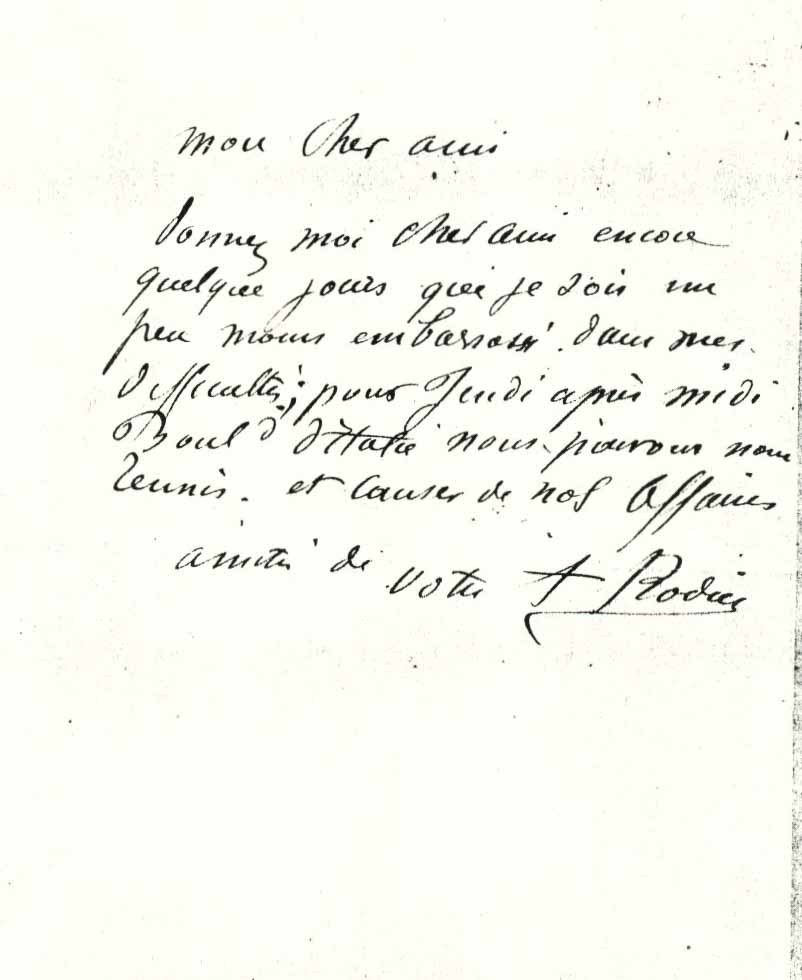 mon cher ami
donnez moi cher ami encore
quelque jours que je sois un
peu moins embarrassé. dans mes
difficultés; pour Jeudi après midi
Boul d d'Italie nous pouvons nous
réunir. et causer de nos affaires
amitié de votre A Rodin